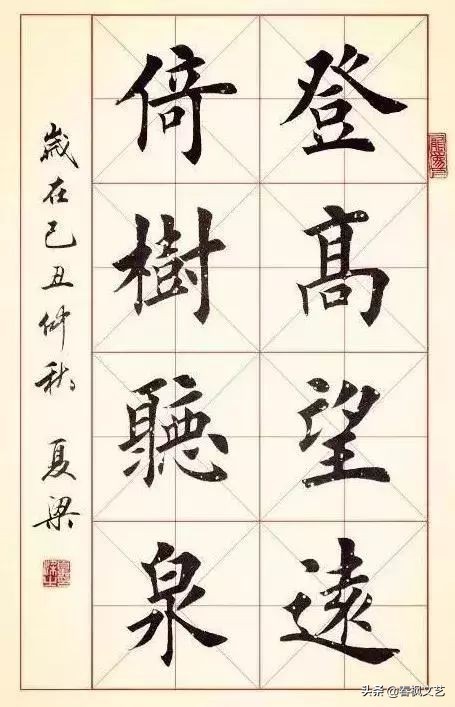 登髙望遠
倚樹聽泉
歲在己丑仲秋 夏梁
头条@春枫文艺